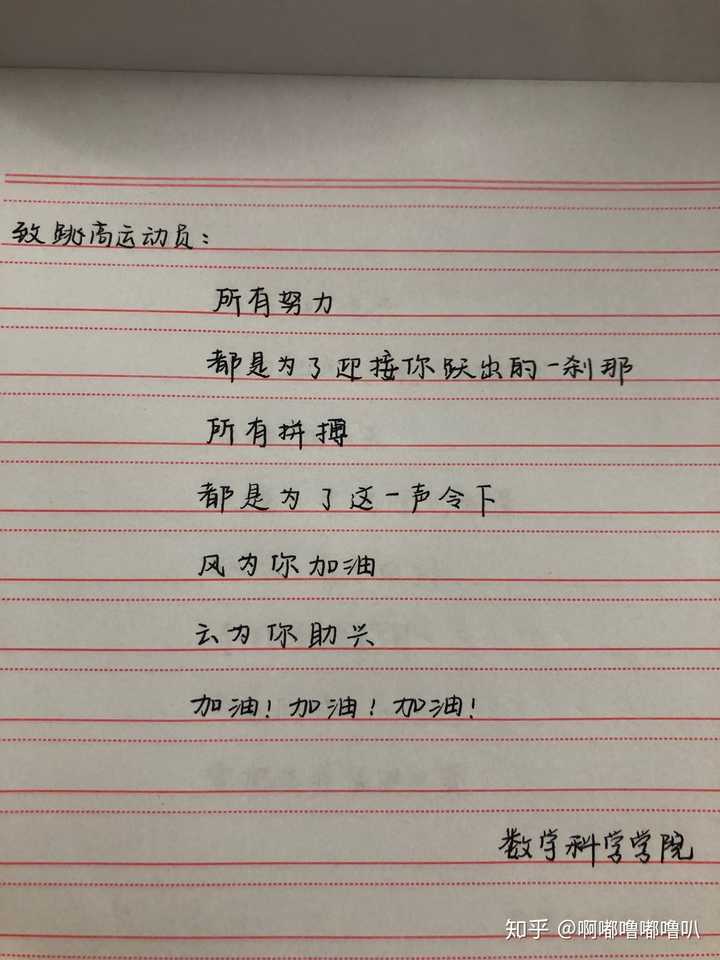 致跳高运动员：
所有努力
都是为了迎接你跃出的一刹那
所有拼搏
都是为了这一声令下
风为你加油
云为你助兴
加油！加油！加油！
数学科学学院
知乎 @啊嘟噜嘟噜叭